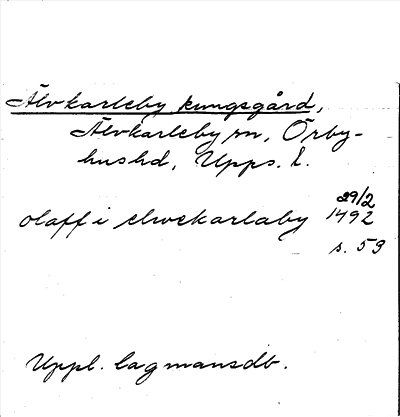 Älvkarleby kungsgård,
Älvkarleby sn, Örby-
hushd, Upps. l.
29/2
olaff i elwekarlaby 1492
s. 59
Uppl. lagmansdb.